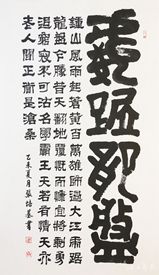 虎踞龍盤
鍾山風雨起蒼黃百萬雄師過大江虎踞
龍盤今勝昔天翻地覆慨而慷宜將剩勇
追窮寇不可沽名學霸王天若有情天亦
老人間正道是滄桑
乙未夏月書